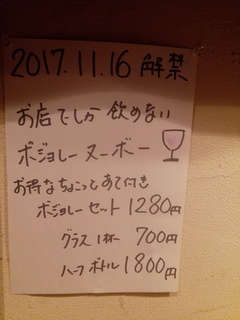 2017.11.16 解禁
お店でしか 飲めない
ボジョレー ヌーボー
お得なちょこっとあて付き
ボジョレー セット 1280円
グラス 1杯 700円
ハーフ ボトル 1800円